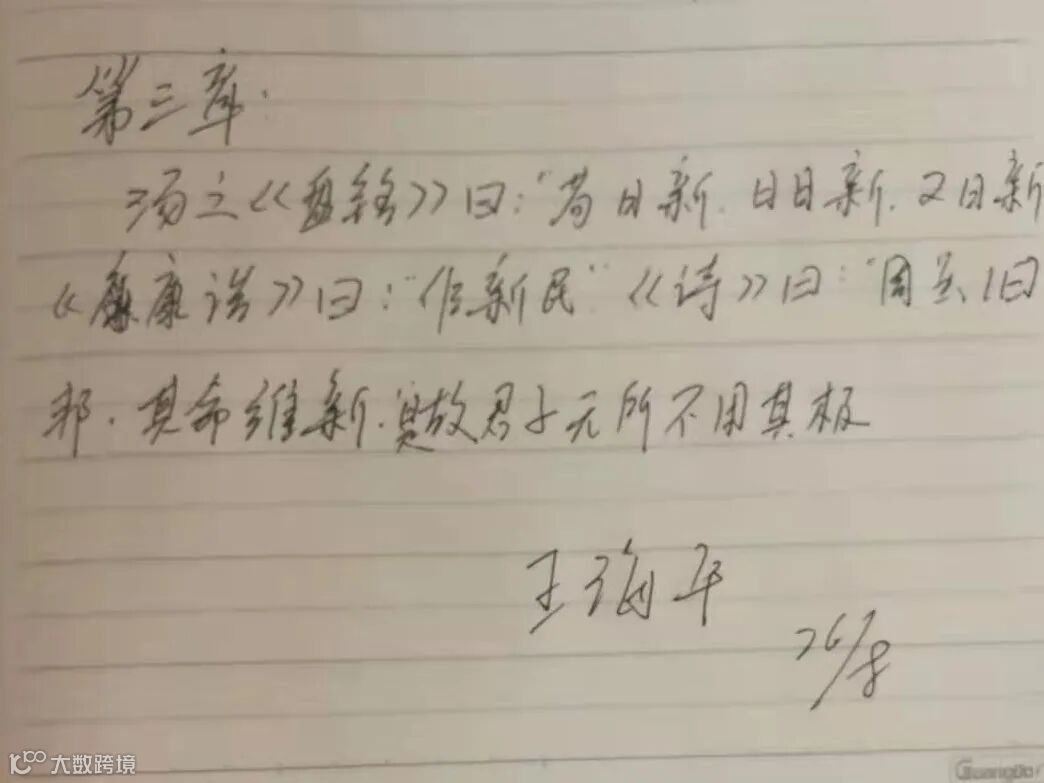 第三章.
汤之《盘铭》曰:"苟日新.日日新.又日新
《康诰》曰:"作新民"《诗》曰:"周虽旧
邦.其命维新.是故君子无所不用其极
王海平
26/8
大数跨境